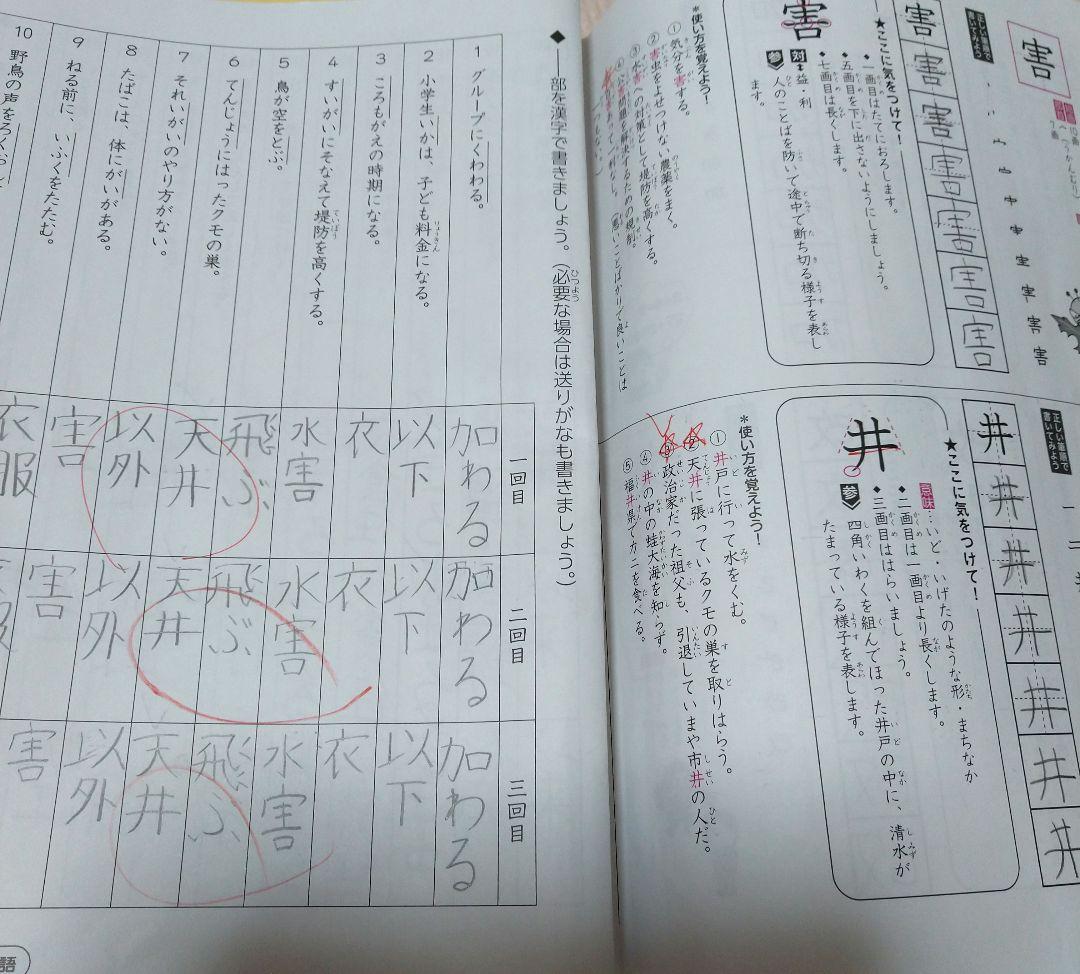 害
正しい筆順で書いてみよう
害 害 害 害 害 害 害
★ここに気をつけて！
◆一画目はたてにおろします。
◆五画目を下に出さないようにしましょう。
◆七画目は長くします。
対 益・利
参 人のことばを防いで途中で断ち切る様子を表します。
害
＊使い方を覚えよう！
①気分を害する。
②害虫をよせつけない農薬をまく。
③水害への対策として堤防を高くする。
正しい筆順で書いてみよう
井 井 井 井 井 井 井
★ここに気をつけて！
意味…いど・いげたのような形・まちなか
◆二画目は一画目より長くします。
◆三画目ははらいましょう。
参 四角いわくを組んでほった井戸の中に、清水がたまっている様子を表します。
井
＊使い方を覚えよう！
①井戸に行って水をくむ。
②天井に張っているクモの巣を取りはらう。
③政治家だった祖父も、引退していまや市井の人だ。
④井の中の蛙大海を知らず。
⑤福井県でカニを食べる。
◆――部を漢字で書きましょう。（必要な場合は送りがなも書きましょう。）
一回目
二回目
三回目
1 グループにくわわる。
加わる
加わる
加わる
2 小学生いかは、子ども料金になる。
以下
以下
以下
3 ころもがえの時期になる。
衣
衣
衣
4 すいがいにそなえて堤防を高くする。
水害
水害
水害
5 鳥が空をとぶ。
飛ぶ
飛ぶ
飛ぶ
6 てんじょうにはったクモの巣。
天井
天井
天井
7 それいがいのやり方がない。
以外
以外
以外
8 たばこは、体にがいがある。
害
害
害
9 ねる前に、いふくをたたむ。
衣服
服
10 野鳥の声を
語